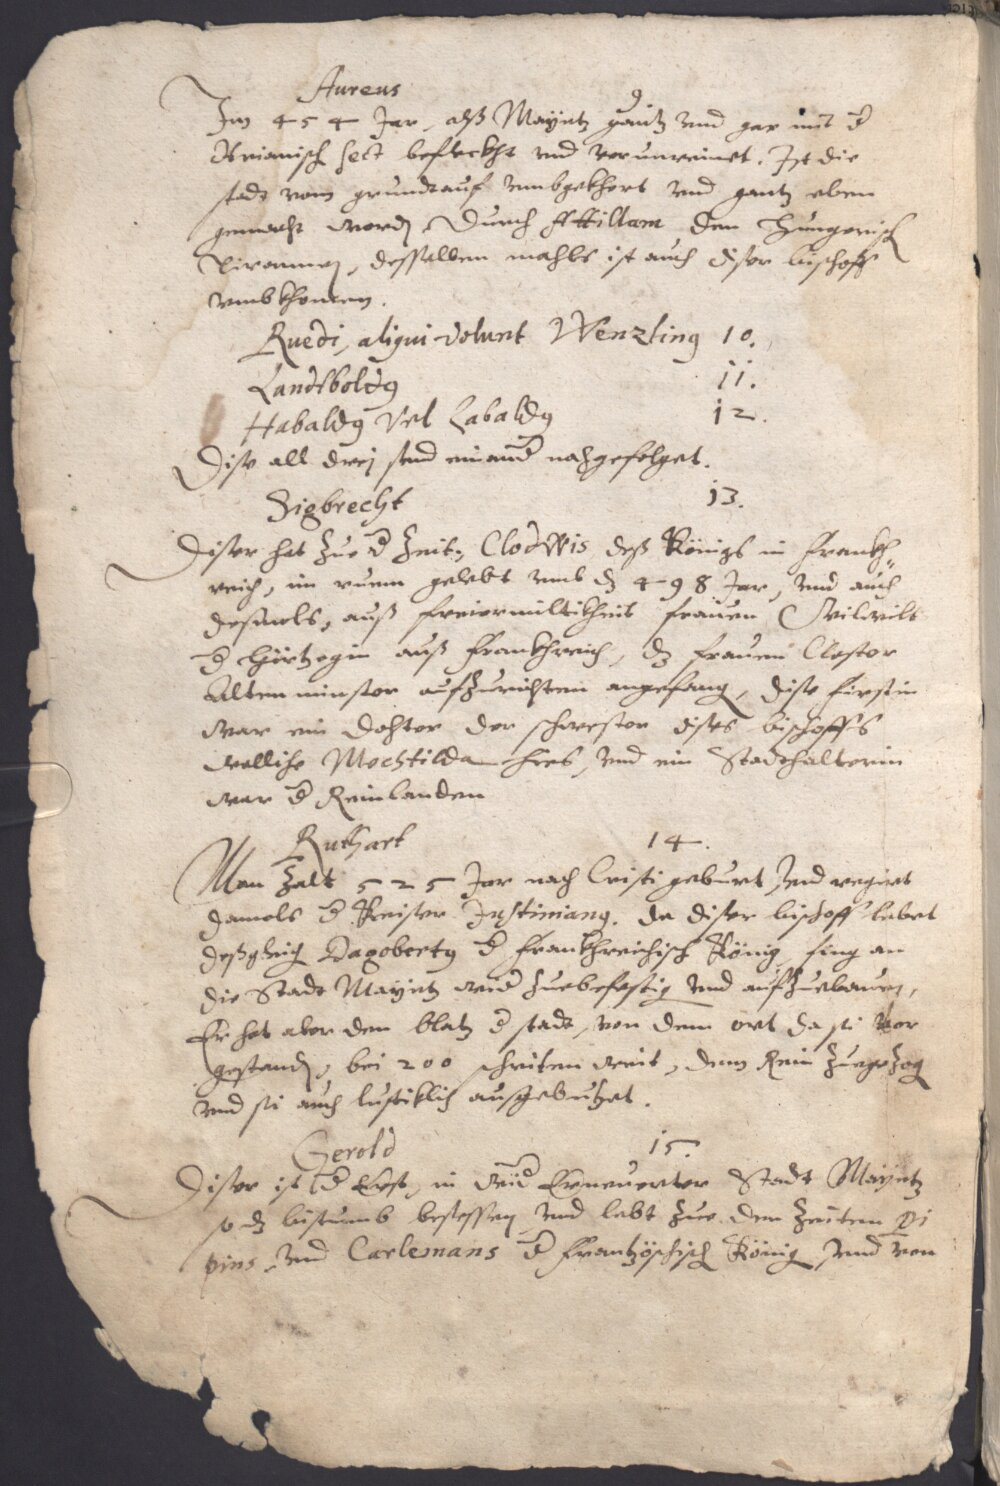 Aureus 9
Im 454 Jar, alß Mayntz gantz vnd gar mit d
Arianisch sect befleckht vnd verunreinet. Ist die
stadt vom grundt auf vmbgekhert vnd gantz eben
gemacht word, Durch Attillam den Hungerisch
Tirannen, desselben mahls ist auch diser bischoff
vmbkhomen.
Ruedi, aliqui volunt Wenzling 10.
Landtboldg 11.
Habaldg vel Labaldg 12.
Dise all drej send einand nachgefolget.
Sigbrecht 13.
Diser hat zue d Zeit, Clodwis deß Königs in Frankh
reich, im ruem gelebt vmb dz 498 Jar, vnd auch
desmols, auß freiermiltikheit frauen Vilmilt
d Hertzogin auß Frankhreich, dz frauen Closter
Altenminster aufzurichten angefang, dise firstin
war ein dohter der schwester dises bischoffs
welliche Mechtilda hies, vnd ein Stadthalterin
war d Reinlanden
Ruthart 14.
Man zalt 525 Jar nach Cristi geburt, vnd regirt
damols d Keiser Justiniang. da diser bischoff lebet
deßgleich Dagobertg d Frankhreichisch König, fing an
die Stadt Mayntz wid zuebefestig vnd aufzuebauen,
Er hat aber den blatz d stadt, von dem ort da si vor
gestand, bei 200 schriten weit, dem Rein zuegezog
vnd si auch lustiklich ausgebutzet.
Gerold 15.
Diser ist d Erst, in wid Erneuerter Stadt Mayntz
so dz bistumb besessen, vnd lebt zue den Zeiten Pi
pins, vnd Carlemans d Frantzösisch König, vnd von